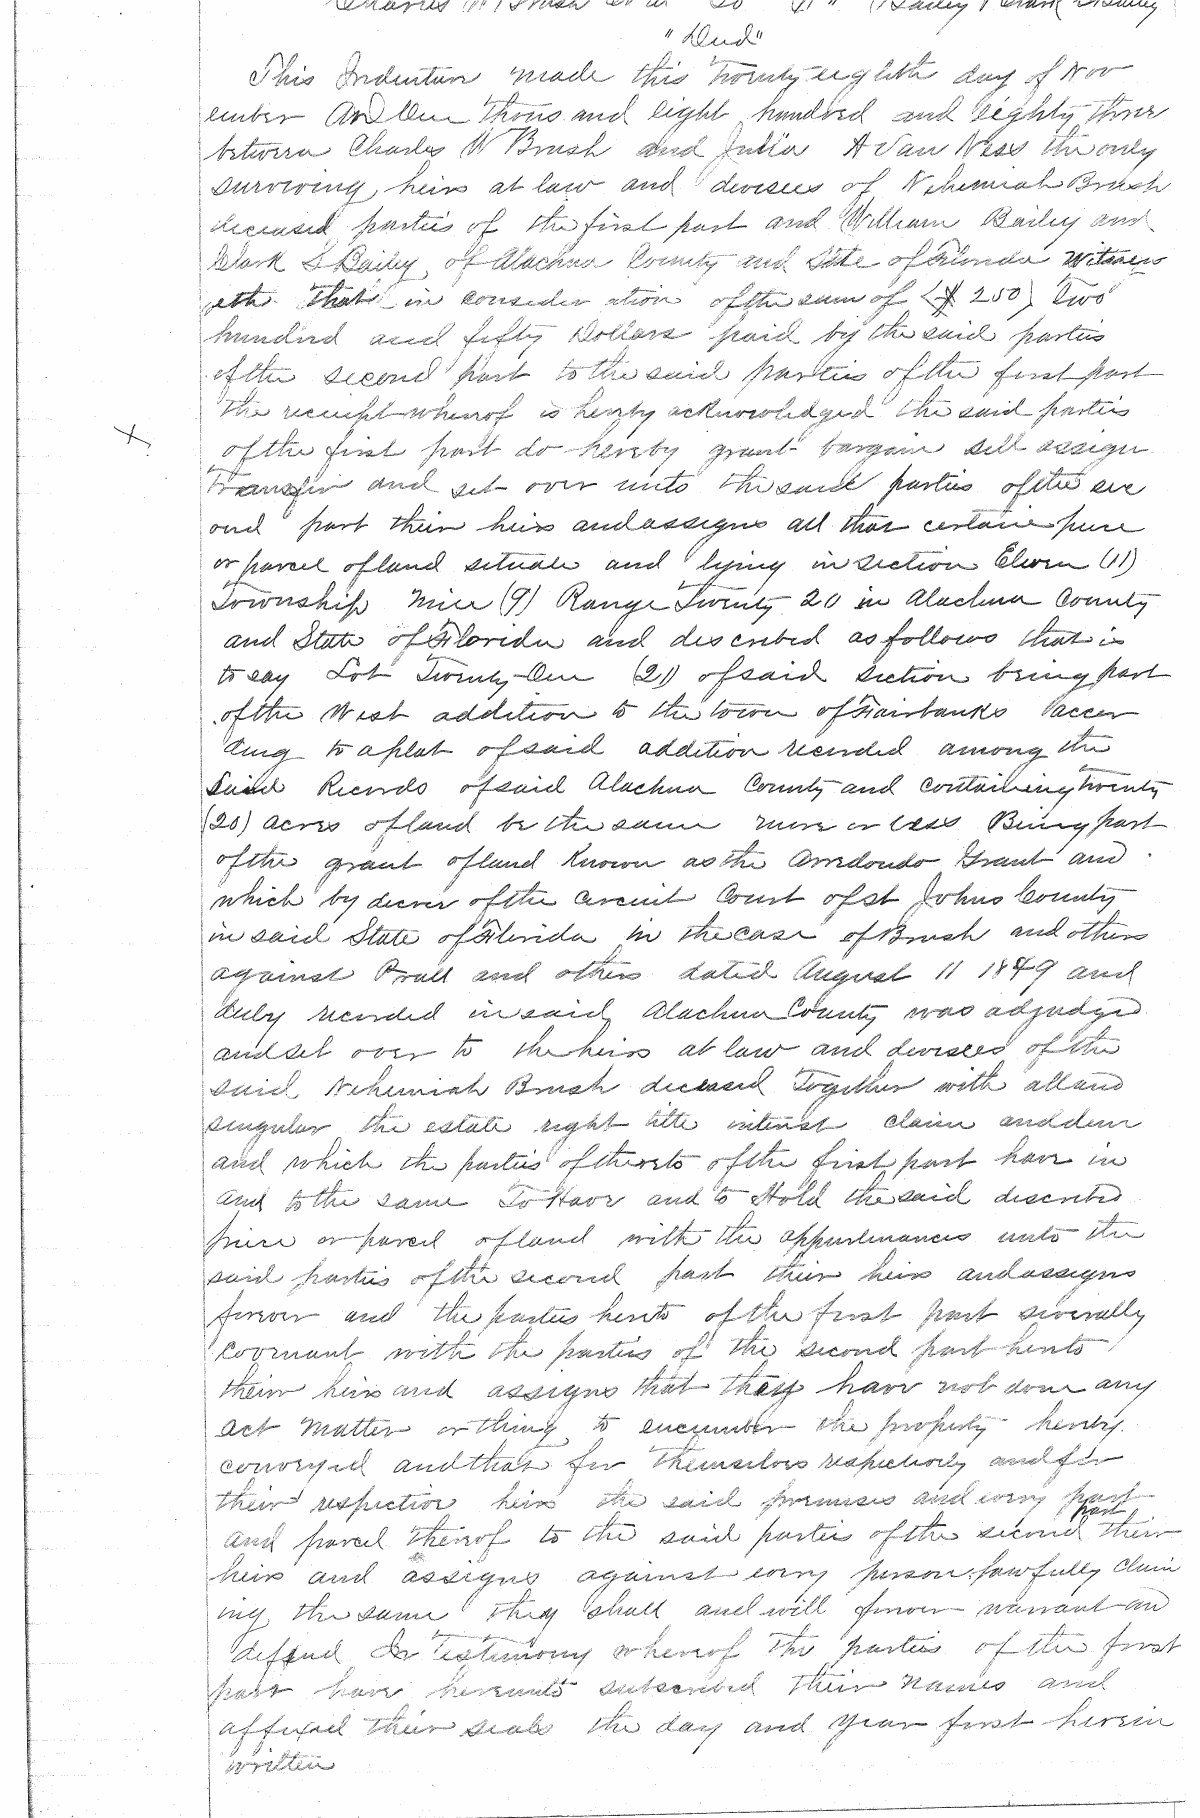 Charles W Brush et al to "D" Bailey & Clark S Bailey
"Deed"
This Indenture made this Twenty eighth day of Nov
ember AD One thousand eight hundred and eighty three
between Charles W Brush and Julia A Van Ness the only
surviving heirs at law and devisees of Nehemiah Brush
deceased parties of the first part and William Bailey and
Clark S Bailey of Alachua County and State of Florida Witness
eth that in consideration of the sum of ($250) Two
hundred and fifty Dollars paid by the said parties
of the second part to the said parties of the first part
the receipt whereof is hereby acknowledged the said parties
of the first part do hereby grant bargain sell assign
Transfer and set over unto the said parties of the sec
ond part their heirs and assigns all that certain piece
or parcel of land situate and lying in section Eleven (11)
Township Nine (9) Range Twenty 20 in Alachua County
and State of Florida and described as follows that is
to say Lot Twenty One (21) of said section being part
of the West addition to the town of Fairbanks accor
ding to a plat of said addition recorded among the
said Records of said Alachua County and containing twenty
(20) acres of land be the same more or less Being part
of the grant of land known as the Arredondo Grant and
which by decree of the Circuit Court of St Johns County
in said State of Florida in the case of Brush and others
against Prall and others dated August 11 1849 and
duly recorded in said Alachua County was adjudged
and set over to the heirs at law and devisees of the
said Nehemiah Brush deceased Together with all and
singular the estate right title interest claim and dem
and which the parties of thereto of the first part have in
and to the same To Have and to Hold the said described
piece or parcel of land with the appurtenances unto the
said parties of the second part their heirs and assigns
forever and the parties hereto of the first part severally
covenant with the parties of the second part hereto
their heirs and assigns that they have not done any
act matter or thing to encumber the property hereby
conveyed and that for themselves respectively and for
their respective heirs the said premises and every part
and parcel thereof to the said parties of the second part their
heirs and assigns against every person lawfully claim
ing the same they shall and will forever warrant and
defend In Testimony whereof the parties of the first
part have hereunto subscribed their names and
affixed their seals the day and year first herein
written